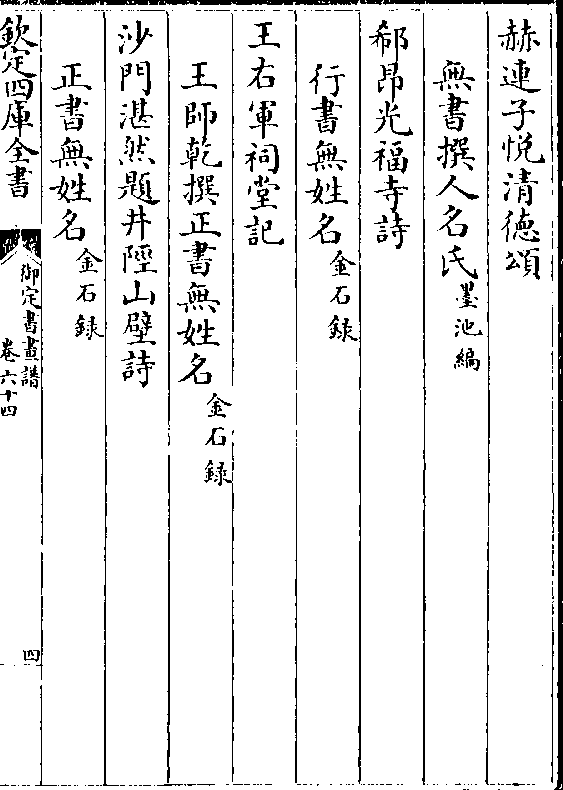 赫連子悦清徳頌
無書撰人名氏墨池編
郗昂光福寺詩
行書無姓名金石録
王右軍祠堂記
王師乾撰正書無姓名金石録
沙門湛然題井陘山壁詩
正書無姓名金石録
欽定四庫全書
御定書畫譜
卷六十四
四